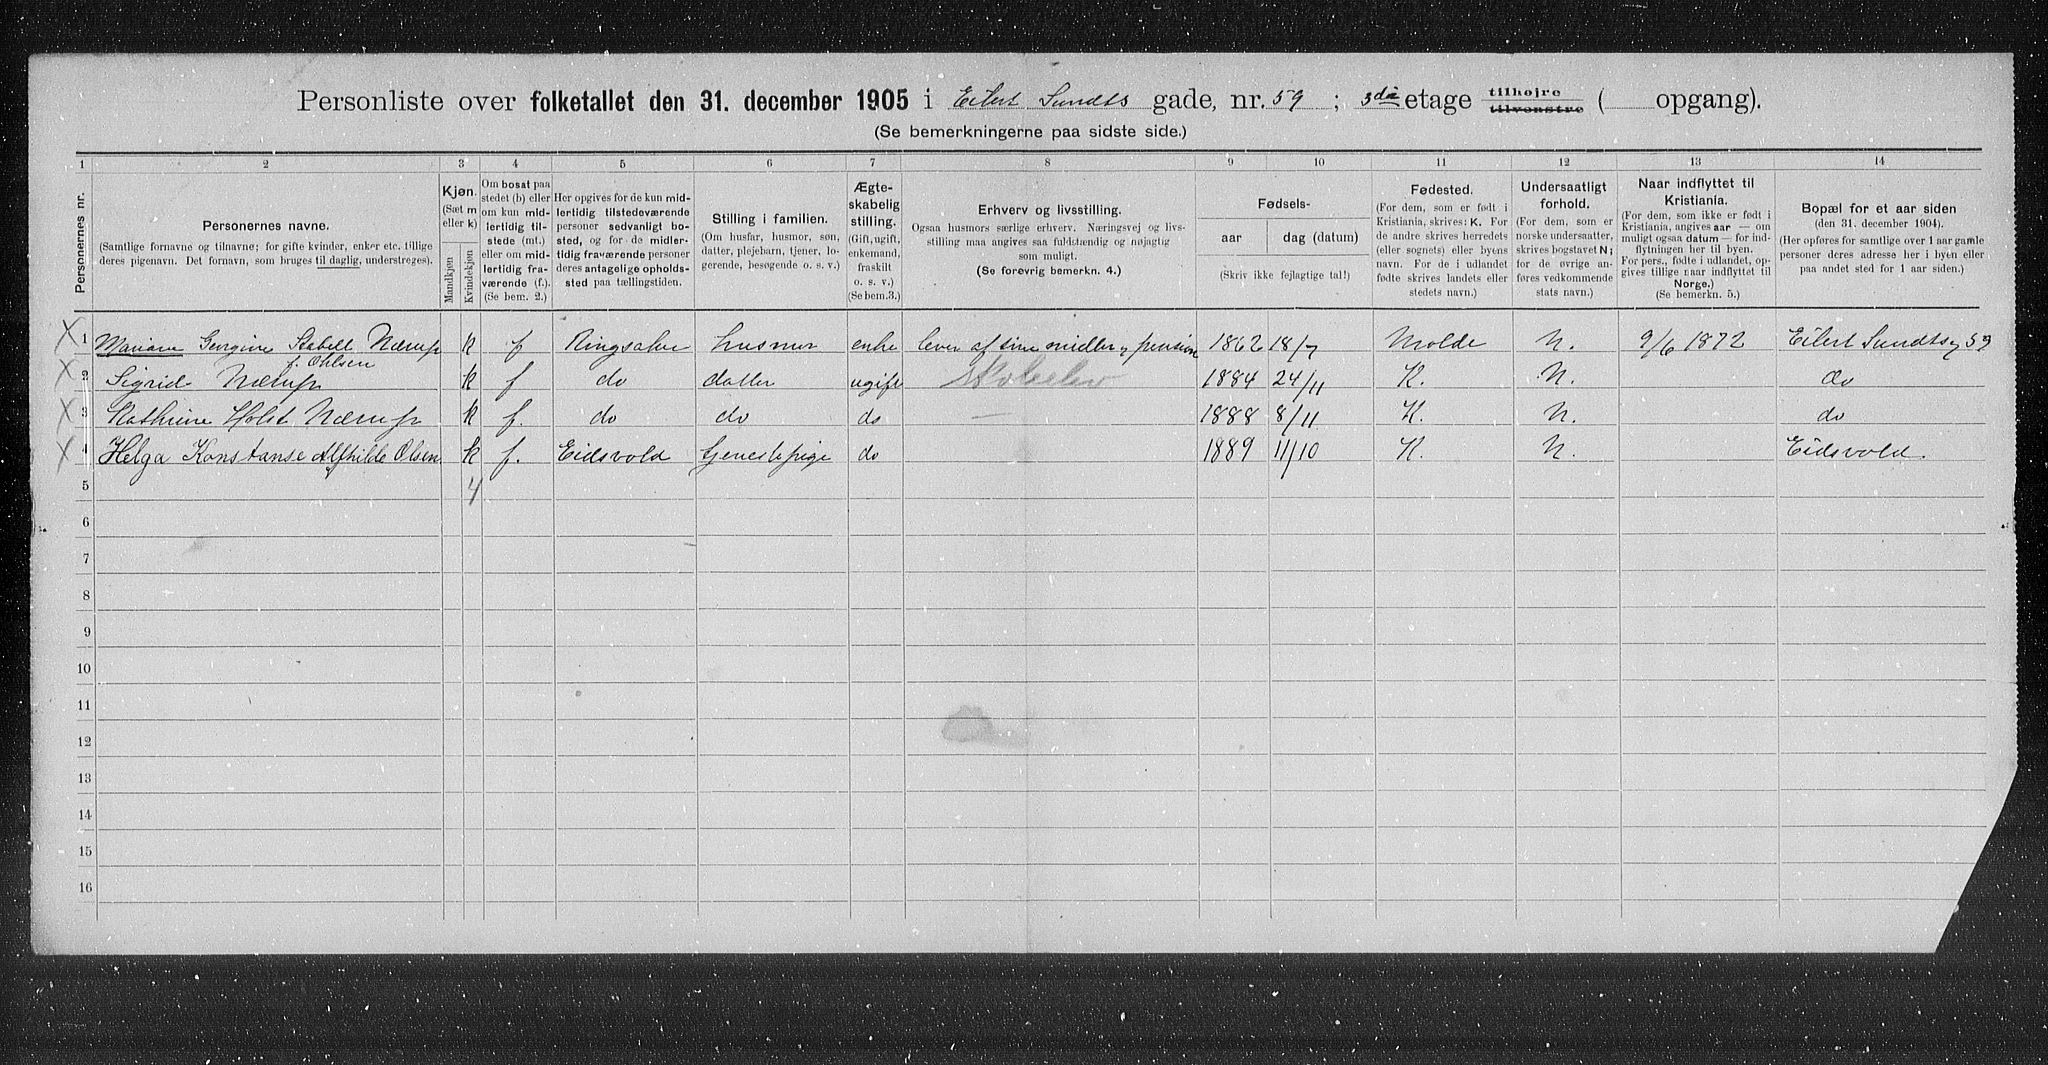 Personliste over folketallet den 31. december 1905 i Eilert Sundts gade, nr. 59 ; 3die etage tilhøjre tilvenstre ( opgang).
(Se bemerkningerne paa sidste side.)
1 2 3 4 5 6 7 8 9 10 11 12 13 14
Personernes nr.
Personernes navne.
(Samtlige fornavne og tilnavne; for gifte kvinder, enker etc. tillige deres pigenavn. Det fornavn, som bruges til daglig, understreges).
Kjøn.
(Sæt m eller k)
Mandkjøn
Kvindekjøn
Om bosat paa stedet (b) eller om kun midlertidig tilstede (mt.) eller om midlertidig fraværende (f.). (Se bem. 2.)
Her opgives for de kun midlertidig tilstedeværende personer sedvanligt bosted, og for de midlertidig fraværende personer deres antagelige opholdssted paa tællingstiden.
Stilling i familien.
(Om husfar, husmor, søn, datter, plejebarn, tjener, logerende, besøgende o. s. v.)
Ægteskabelig stilling.
(Gift, ugift, enkemand, fraskilt o. s. v.) (Se bem. 3.)
Erhverv og livsstilling.
Ogsaa husmors særlige erhverv. Næringsvej og livsstilling maa angives saa fuldstændig og nøjagtig som muligt.
(Se forøvrig bemerkn. 4.)
Fødsels-
aar
dag (datum)
(Skriv ikke fejlagtige tal!)
Fødested.
(For dem, som er født i Kristiania, skrives: K. For de andre skrives herredets (eller sognets) eller byens navn. For de i udlandet fødte skrives landets eller stedets navn.)
Undersaatligt forhold.
(For norske undersaatter, skrives bogstavet N; for de øvrige anføres vedkommende stats navn.)
Naar indflyttet til Kristiania.
(For dem, som ikke er født i Kristiania, angives aar — om muligt ogsaa datum — for indflytningen her til byen. For pers., fødte i udlandet, opgives tillige naar indflyttet til Norge.)
(Se bemerkn. 5.)
Bopæl for et aar siden
(den 31. december 1904).
(Her opføres for samtlige over 1 aar gamle personer deres adresse her i byen eller paa andet sted for 1 aar siden.)
X 1 Mariane Georgine Stabell Nærup f. Ohlsen k f Ringsaker husmor enke lever af sine midler og pension 1862 18/7 Molde N. 9/6 1872 Eilert Sundtsg 59
X 2 Sigrid Nærup k f do datter ugift Skoleelev 1884 24/11 K. N. do
X 3 Kathrine Holst Nærup k f. do do do — 1888 8/11 K. N. do
X 4 Helga Konstanse Alfhilde Olsen k f. Eidsvold tjenestepige do 1889 11/10 K. N. Eidsvold.
5 4
6
7
8
9
10
11
12
13
14
15
16